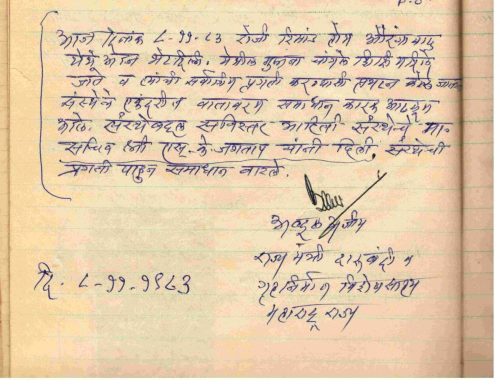 आज दिनांक ८-११-८३ रोजी रिमांड होम औरंगाबाद
येथे आज भेट दिली. येथील मुलांना चांगले शिक्षण दिले
जाते व त्यांची सर्वांगीण प्रगती करण्याची प्रयत्न केले जातात
संस्थेचे एकंदरीत वातावरण समाधान कारक आढळून
आले. संस्थेबद्दल सविस्तर माहिती संस्थेचे मा.
सचिव श्री एस. के. जगताप यांनी दिली. संस्थेची
प्रगती पाहून समाधान वाटले.
अब्दूल अजीम
राज्य मंत्री दारूबंदी व
गृहनिर्माण विशेष सहाय्य
महाराष्ट्र राज्य
दि. ८-११-१९८३